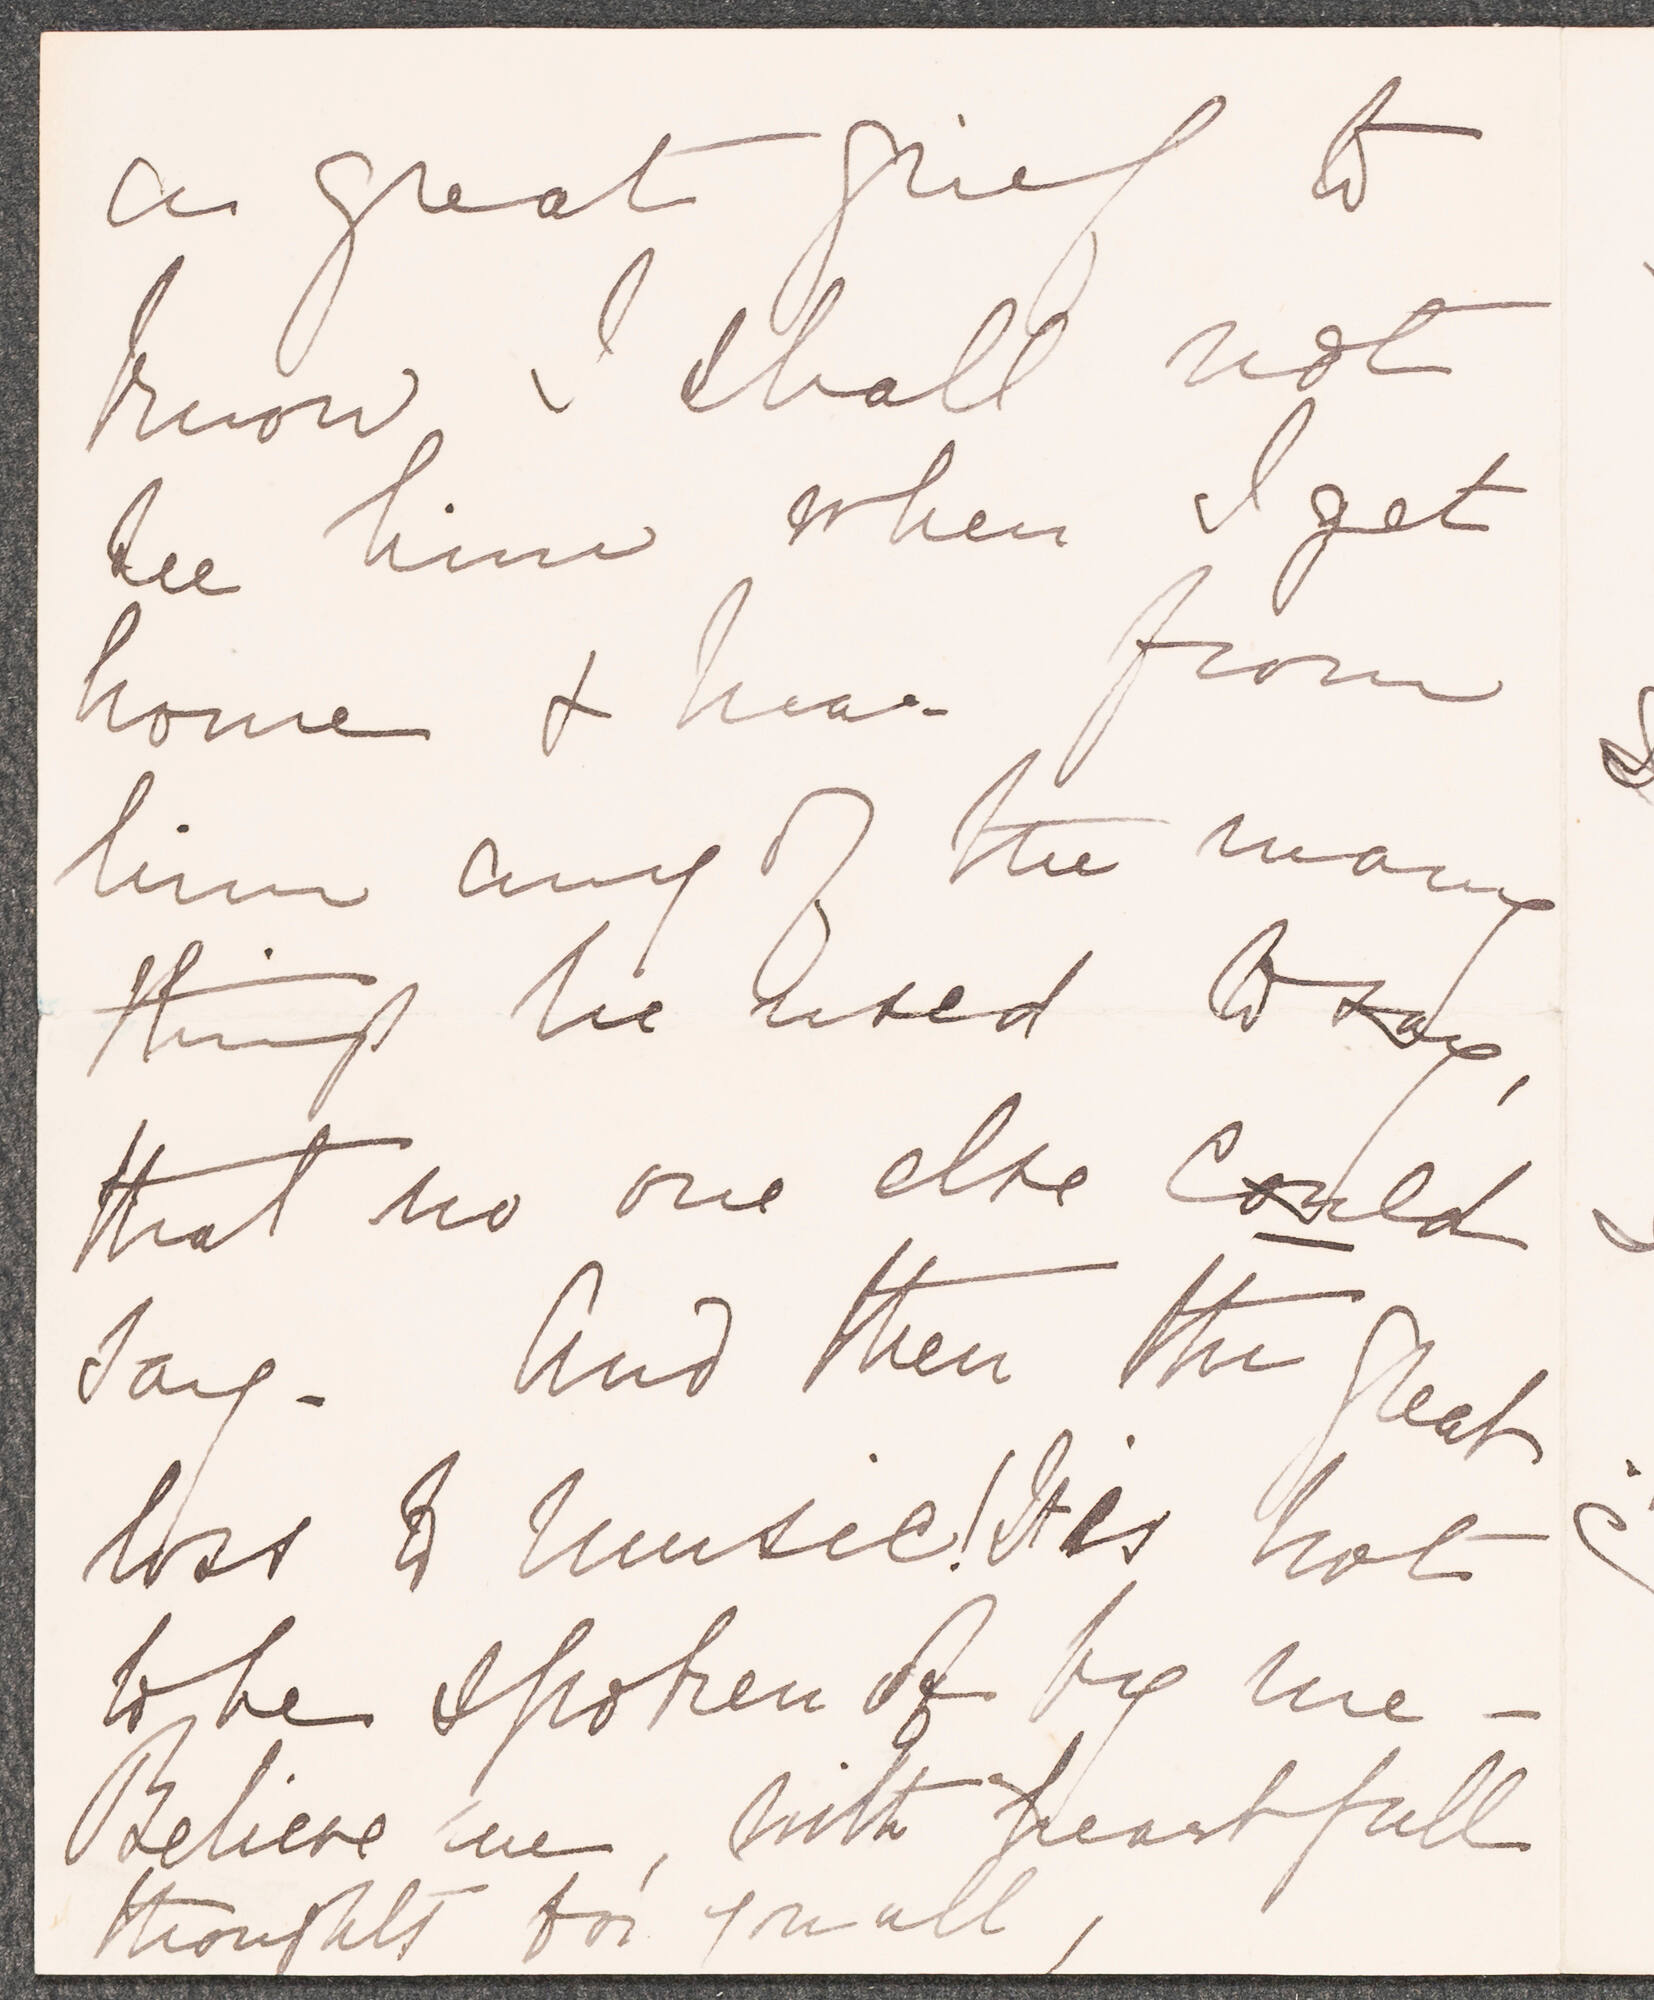 a great grief to
know I shall not
see him when I get
home & hear from
him any of the many
things he used to say,
that no one else could
say - And then the great
loss to music! It is not
to be spoken of by me -
Believe me, with heartfull
thoughts for you all,